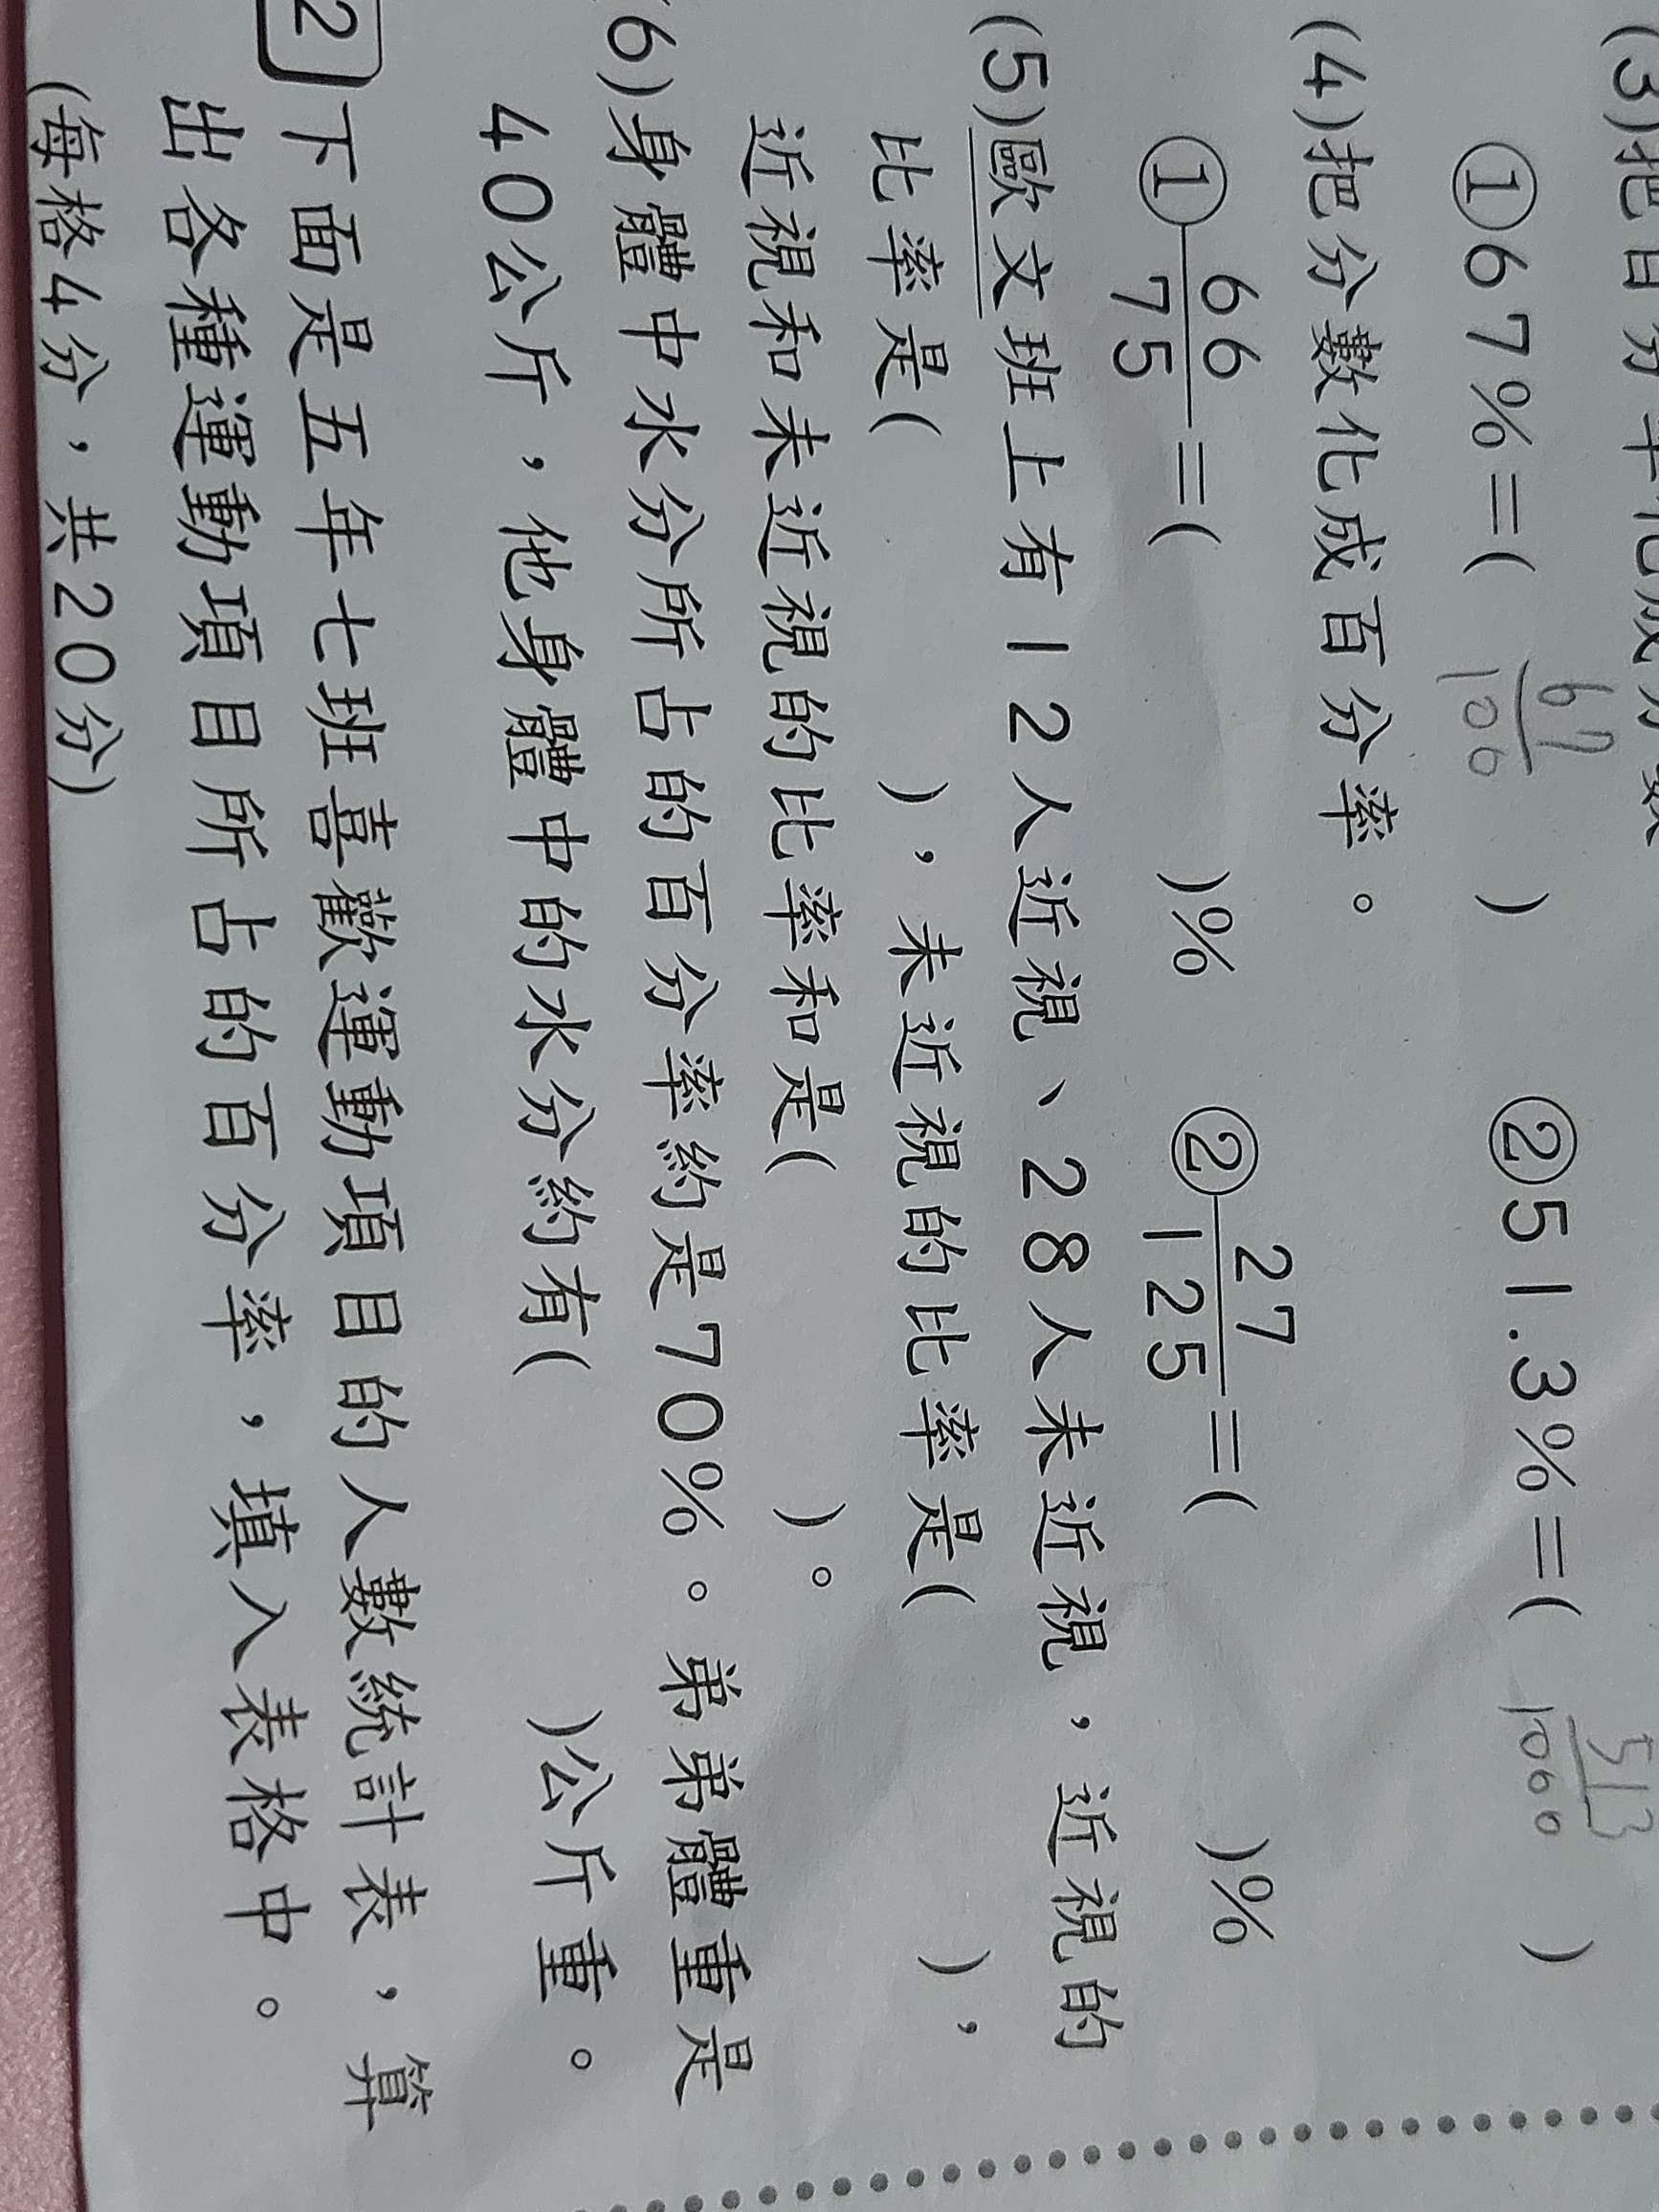 (3)把百分率化成分數
①67%=( 67/100 ) ②51.3%=( 513/1000 )
(4)把分數化成百分率。
①66/75=( )% ②27/125=( )%
(5)歐文班上有12人近視、28人未近視，近視的
比率是( )，未近視的比率是( )，
近視和未近視的比率和是( )。
(6)身體中水分所占的百分率約是70%。弟弟體重是
40公斤，他身體中的水分約有( )公斤重。
2 下面是五年七班喜歡運動項目的人數統計表，算
出各種運動項目所占的百分率，填入表格中。
(每格4分，共20分)